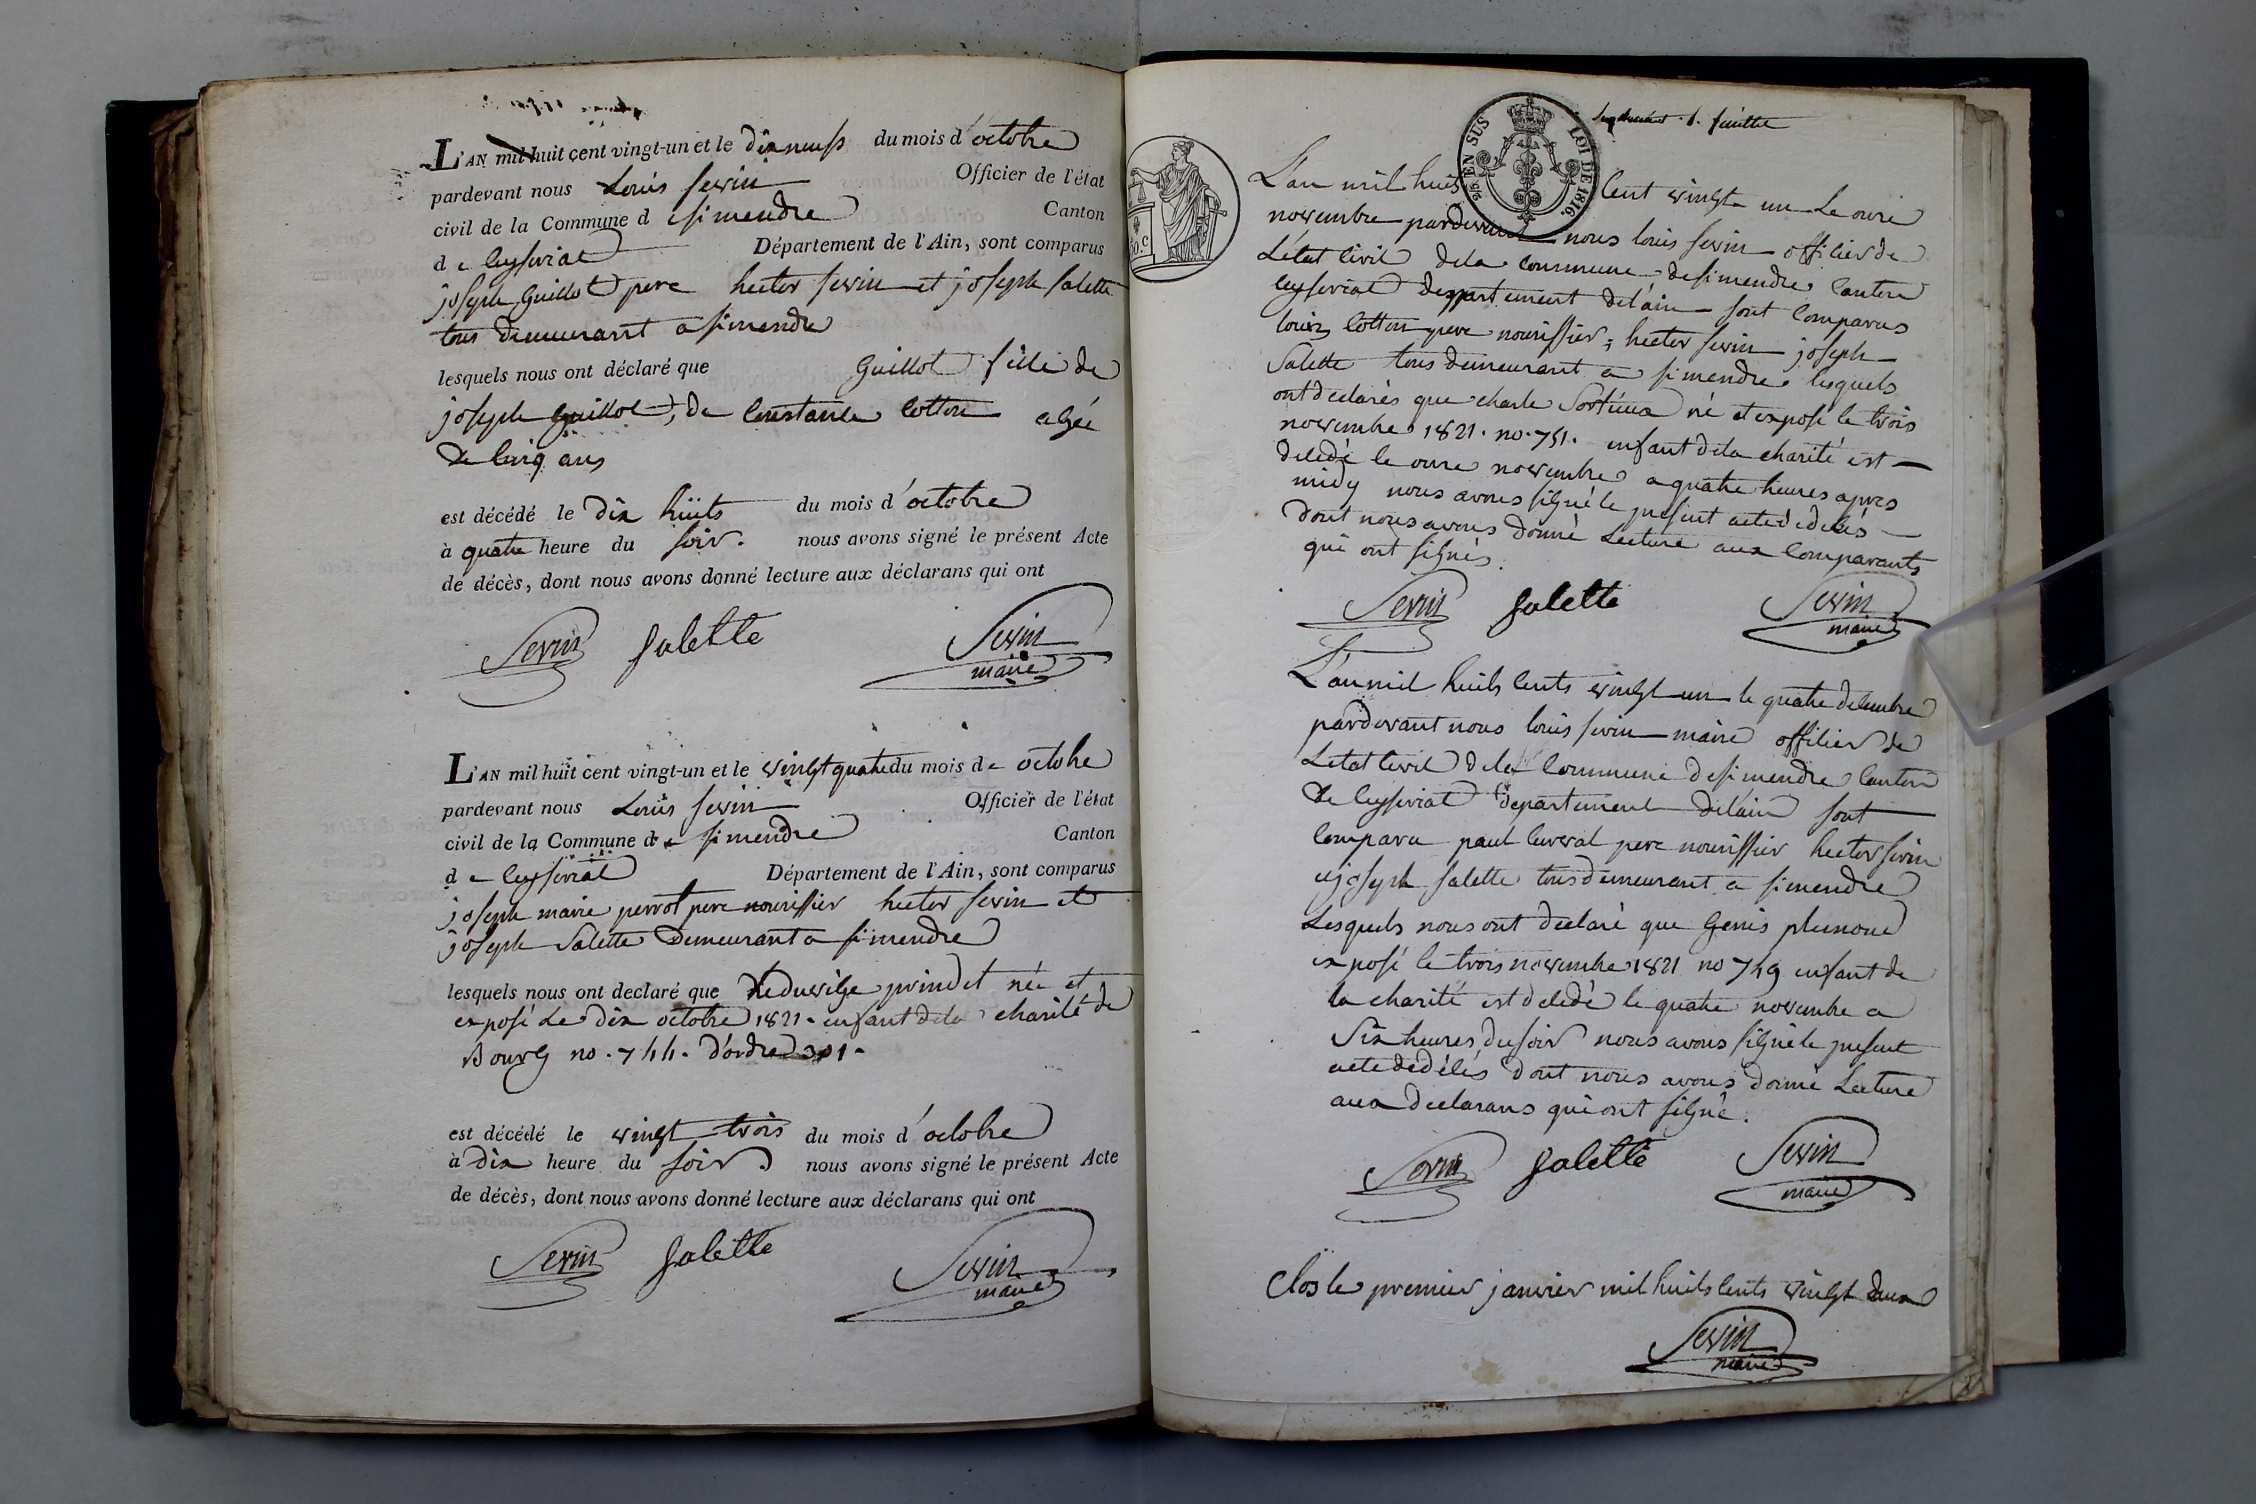 L'AN mil huit cent vingt-un et le dix neuf du mois d'octobre
pardevant nous Louis sevin Officier de l'état
civil de la Commune d simendre Canton
de ceyseriat Département de l'Ain, sont comparus
joseph Guillot pere hector sevin et joseph salette
tous demeurant a simendre
lesquels nous ont déclaré que Guillot fille de
joseph Guillot, de Constance Cotton agée
de cinq ans
est décédé le dix huits du mois d'octobre
à quatre heure du soir. nous avons signé le présent Acte
de décès, dont nous avons donné lecture aux déclarans qui ont
Sevin Salette Sevin
maire
L'AN mil huit cent vingt-un et le vingt quatre du mois de octobre
pardevant nous Louis sevin Officier de l'état
civil de la Commune de simendre Canton
de ceyseriat Département de l'Ain, sont comparus
joseph marie perrot pere nourissier hector sevin et
joseph Salette Demeurant a simendre
lesquels nous ont declaré que née et
exposé Le dix octobre 1821. enfant de la charité de
Bourg no. 744. d'ordre
est décédé le vingt trois du mois d'octobre
à dix heure du soir. nous avons signé le présent Acte
de décès, dont nous avons donné lecture aux déclarans qui ont
Sevin Salette Sevin
maire
1. feuille
EN SUS LOI DE 1816.
50.C
L'an mil huit Cent vingt un Le onze
novembre pardevant nous louis sevin officier de
L'état civil dela commune de simendre Canton
ceyseriat departement del'ain sont Comparus
louis Cotton pere nourissier, hector sevin joseph
Salette tous demeurant a simendre lesquels
ont declarés que charle né et exposé le trois
novembre 1821. no. 751. enfant dela charité est
decedé le onze novembre a quatre heures apres
midy nous avons signé le present acte de decés
dont nous avons donné Lecture aux Comparants
qui ont signés.
Sevin Salette Sevin
maire
L'an mil huits cents vingt un le quatre decembre
pardevant nous louis sevin maire officier de
L'etat Civil dela Commune de simendre Canton
de ceyseriat departement del'ain sont
Comparu paul curval pere nourissier hector sevin
et joseph salette tous demeurant a simendre
Lesquels nous ont declaré que Genis
exposé le trois novembre 1821 no 749 enfant de
la charité est decedé le quatre novembre a
Six heures du soir nous avons signé le present
acte de décés dont nous avons donné Lecture
aux declarans qui ont signé.
Sevin Salette Sevin
maire
Clos le premier janvier mil huits cents vingt deux
Sevin
maire